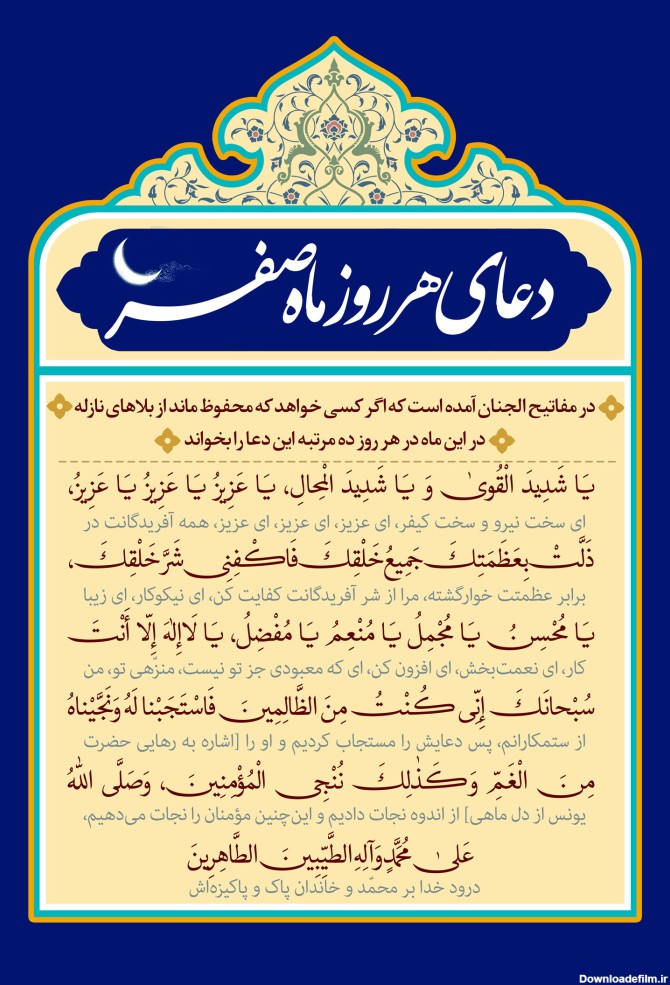 دعای هر روز ماه صفر
در مفاتیح الجنان آمده است که اگر کسی خواهد که محفوظ ماند از بلاهای نازله
در این ماه در هر روز ده مرتبه این دعا را بخواند
يَا شَدِيدَ الْقُوىٰ وَ يَا شَدِيدَ الْمِحالِ، يَا عَزِيزُ يَا عَزِيزُ يَا عَزِيزُ،
ای سخت نیرو و سخت کیفر، ای عزیز، ای عزیز، ای عزیز، همه آفریدگانت در
ذَلَّتْ بِعَظَمَتِكَ جَمِيعُ خَلْقِكَ فَاكْفِنِى شَرَّ خَلْقِكَ،
برابر عظمتت خوارگشته، مرا از شر آفریدگانت کفایت کن، ای نیکوکار، ای زیبا
يَا مُحْسِنُ يَا مُجْمِلُ يَا مُنْعِمُ يَا مُفْضِلُ، يَا لَاإِلٰهَ إِلّا أَنْتَ
کار، ای نعمت‌بخش، ای افزون کن، ای که معبودی جز تو نیست، منزّهی تو، من
سُبْحانَكَ إِنِّى كُنْتُ مِنَ الظَّالِمِينَ فَاسْتَجَبْنا لَهُ وَنَجَّيْناهُ
از ستمکارانم، پس دعایش را مستجاب کردیم و او را [اشاره به رهایی حضرت
مِنَ الْغَمِّ وَكَذٰلِكَ نُنْجِى الْمُؤْمِنِينَ، وَصَلَّى اللّٰهُ
یونس از دل ماهی] از اندوه نجات دادیم و این‌چنین مؤمنان را نجات می‌دهیم،
عَلىٰ مُحَمَّدٍ وَآلِهِ الطَّيِّبِينَ الطَّاهِرِينَ
درود خدا بر محمّد و خاندان پاک و پاکیزه‌اش
Downloadefilm.ir